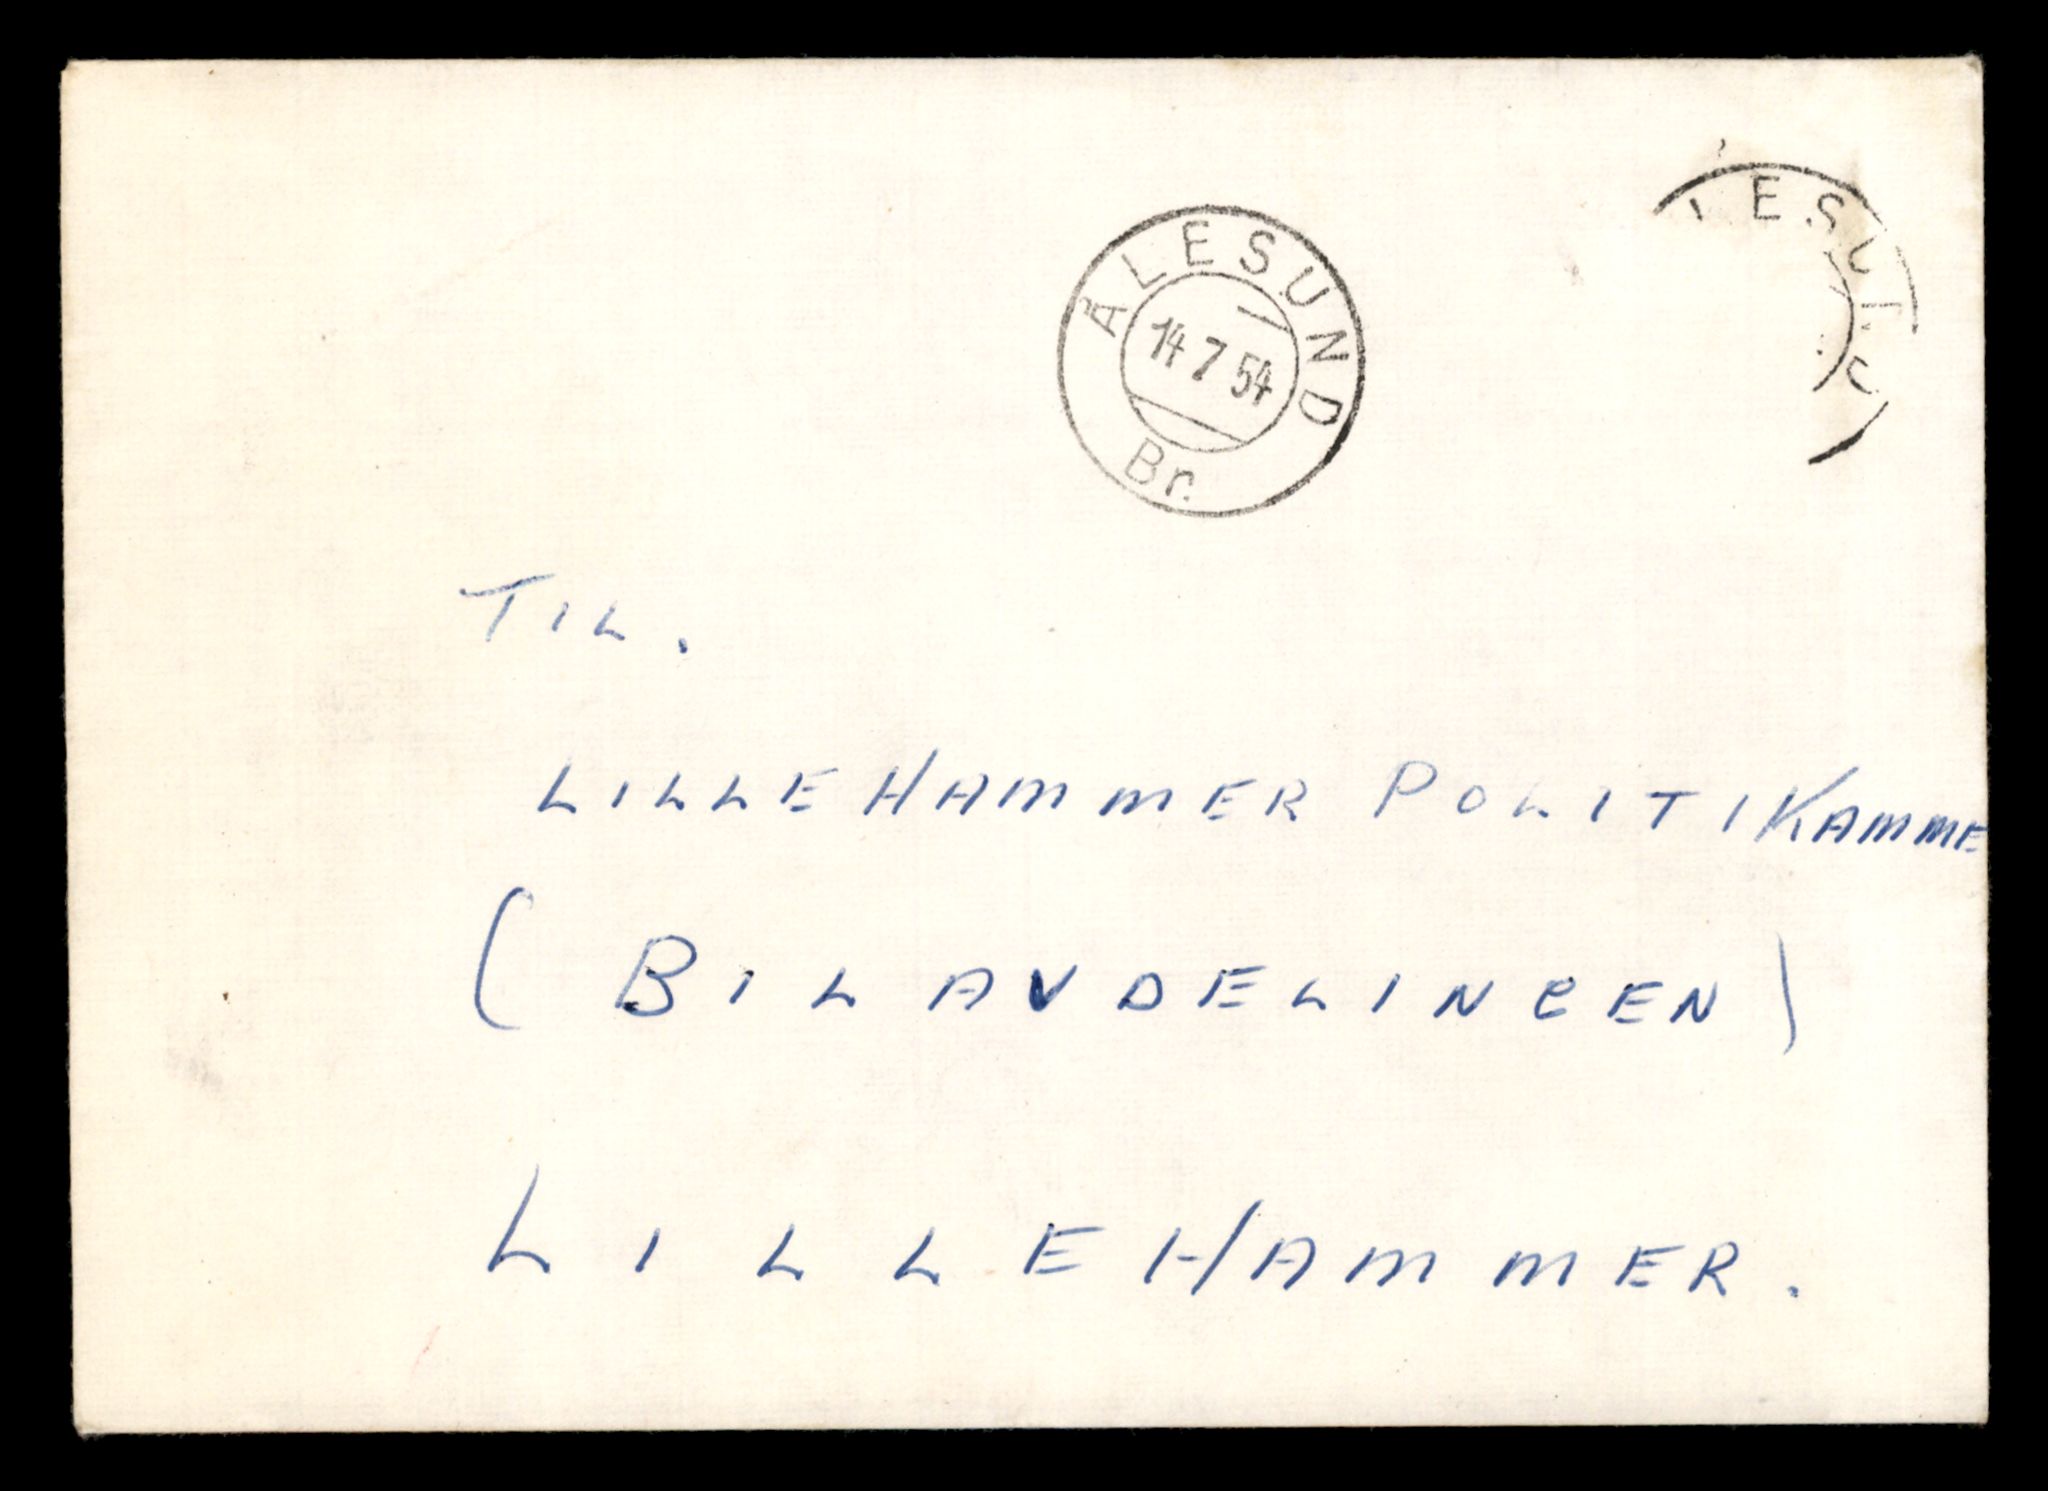 ÅLESUND
14 7 54
Br.
ESU
TIL.
LILLEHAMMER POLITIKAMME
(BILAVDELINGEN)
LILLEHAMMER.